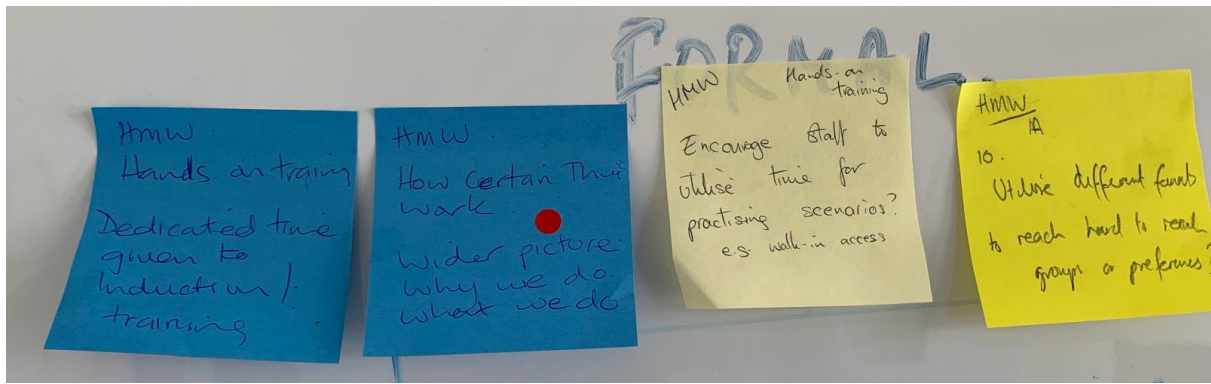 FORMAL.
HMW
Hands on training
Dedicated time
given to
Induction/
training
HMW
How certain
work
wider picture
why we do
what we do
HMW Hands-on
training
Encourage staff to
utilise time for
practising scenarios?
e.g. walk-in access
HMW
10.
Utilise different
to reach hard to reach
groups or preferences?